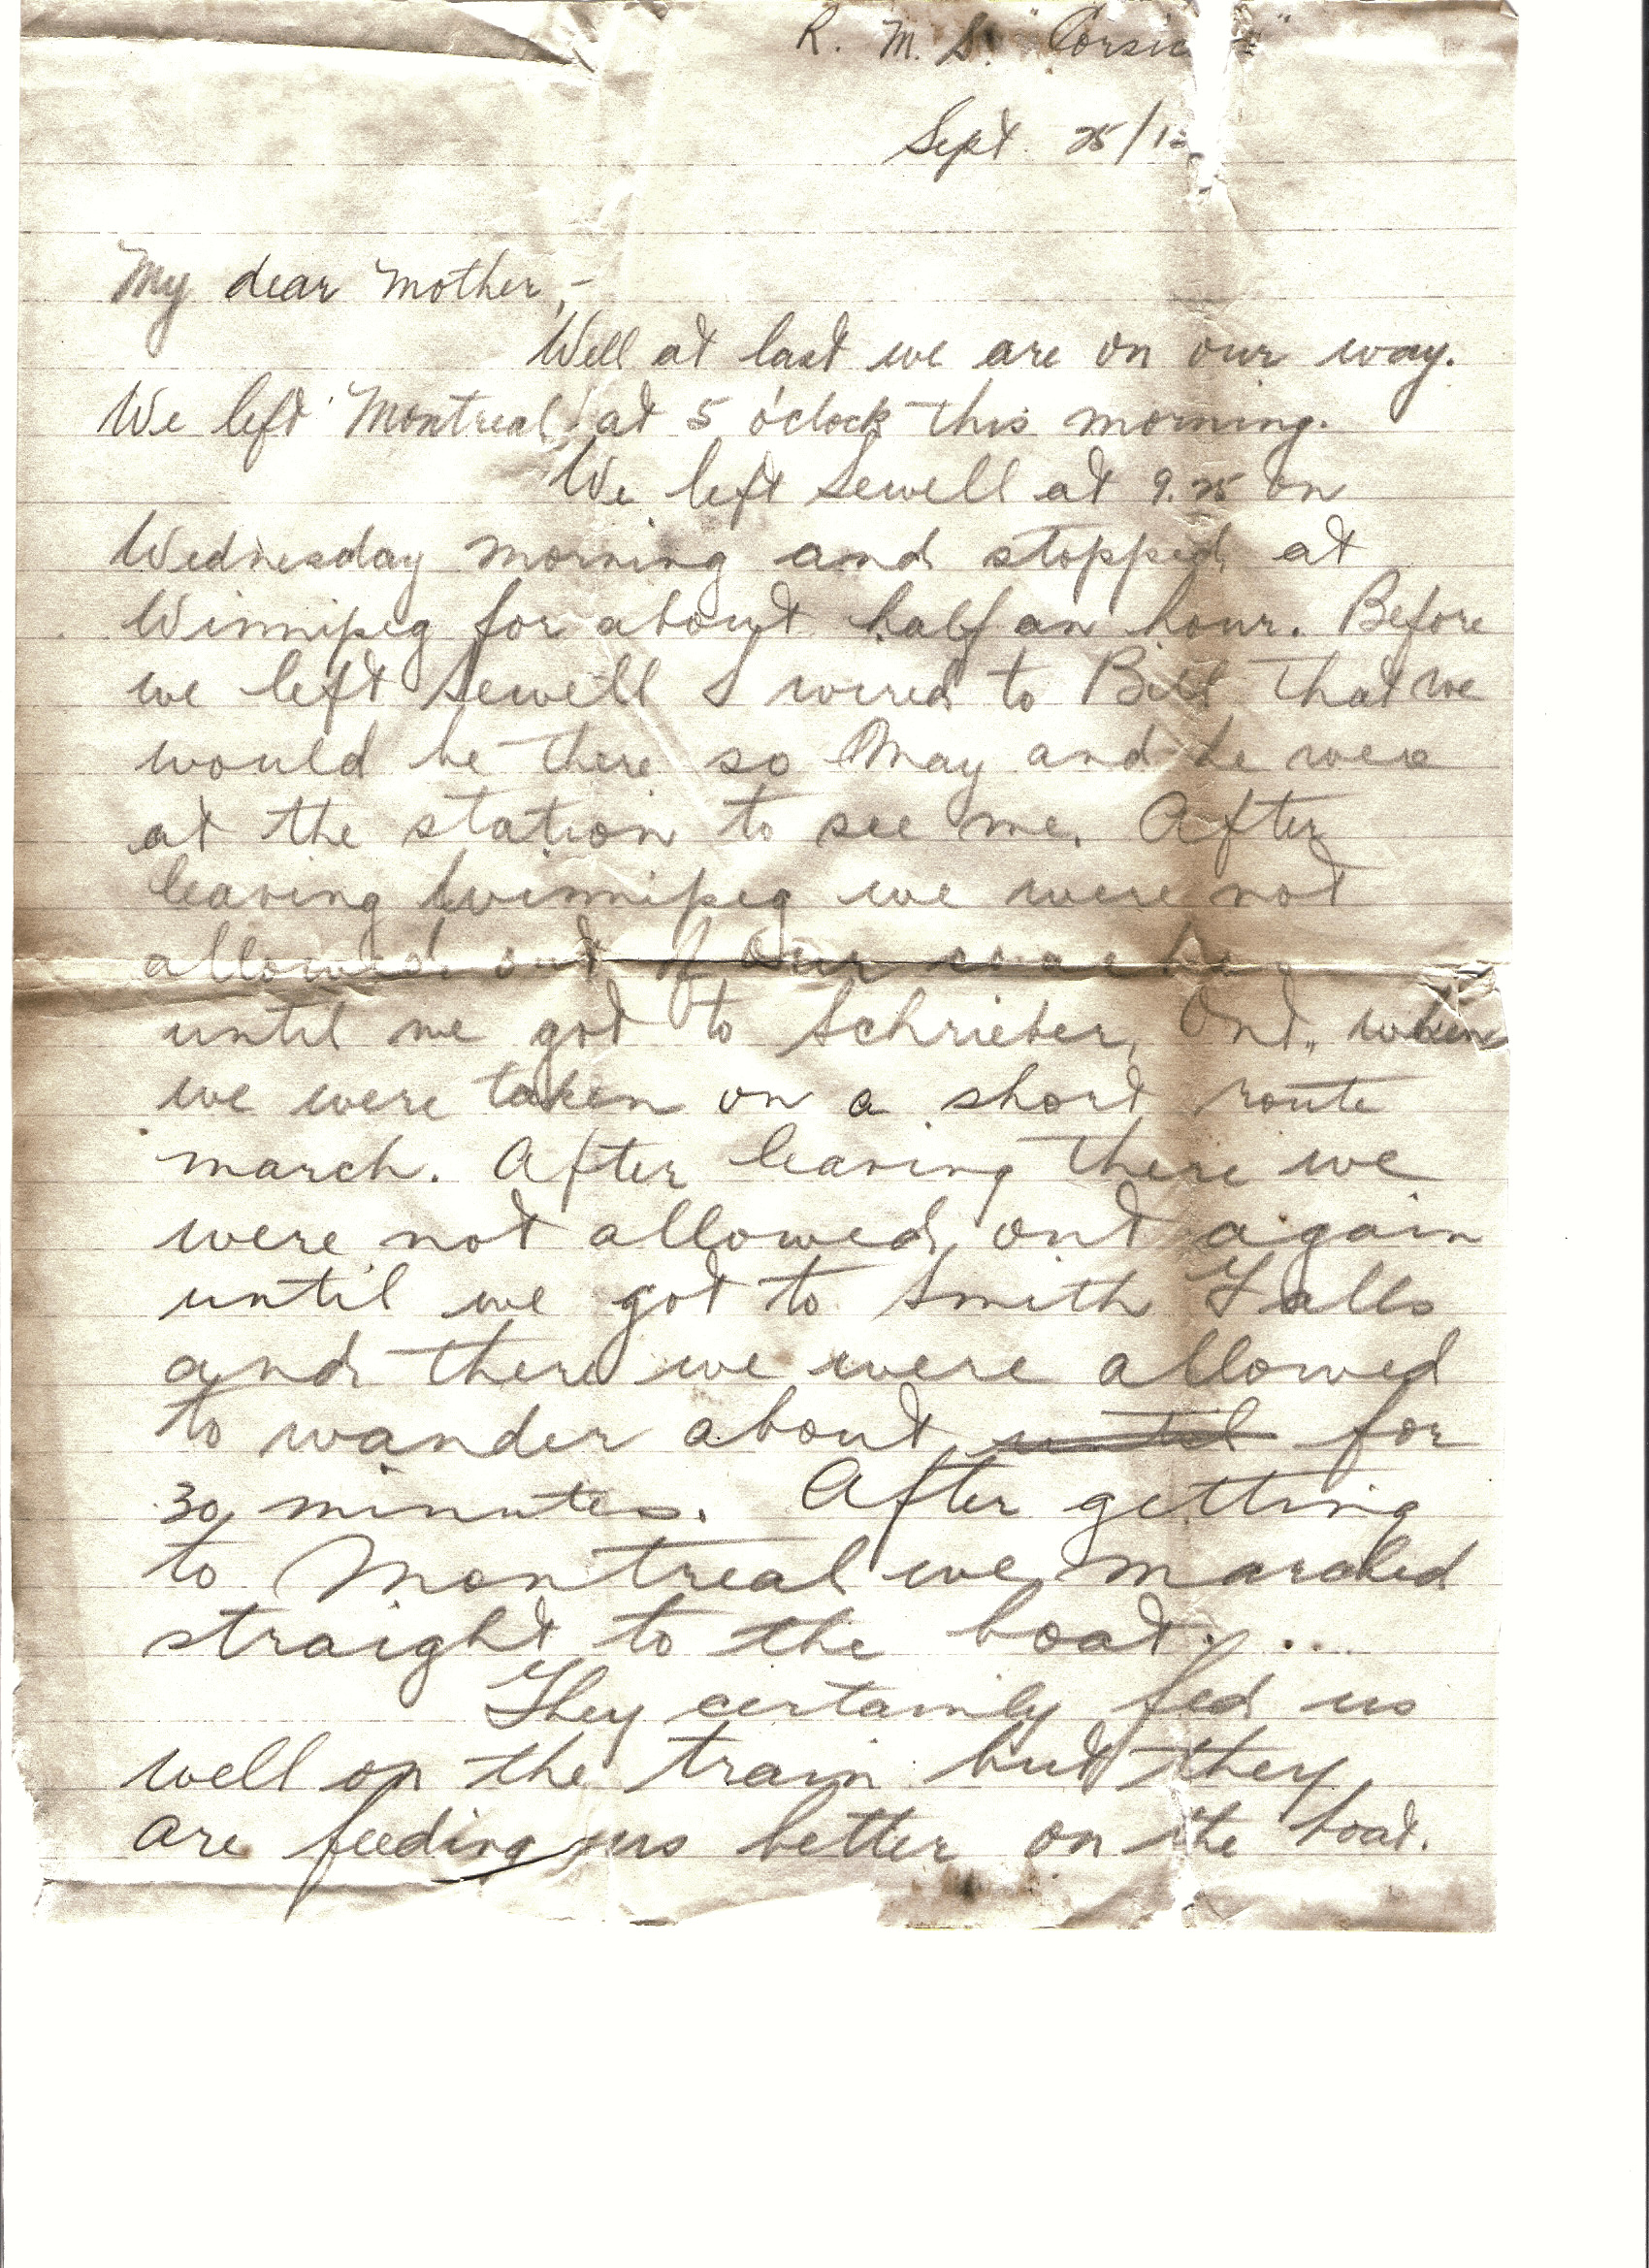 R. M. S. "Corsic
Sept. 25/1
My dear Mother,-
Well at last we are on our way.
We left Montreal at 5 o'clock this morning.
We left Sewell at 9.25 on
Wednesday morning and stopped at
Winnipeg for about half an hour. Before
we left Sewell I wired to Bill that we
would be there so May and he were
at the station to see me. After
leaving Winnipeg we were not
allowed out of our coaches
until we got to Schrieber, Ont. when
we were taken on a short route
march. After leaving there we
were not allowed out again
until we got to Smith Falls
and there we were allowed
to wander about until for
30 minutes. After getting
to Montreal we marched
straight to the boat. ....
They certainly fed us
well on the train but they
are feeding us better on the boat.